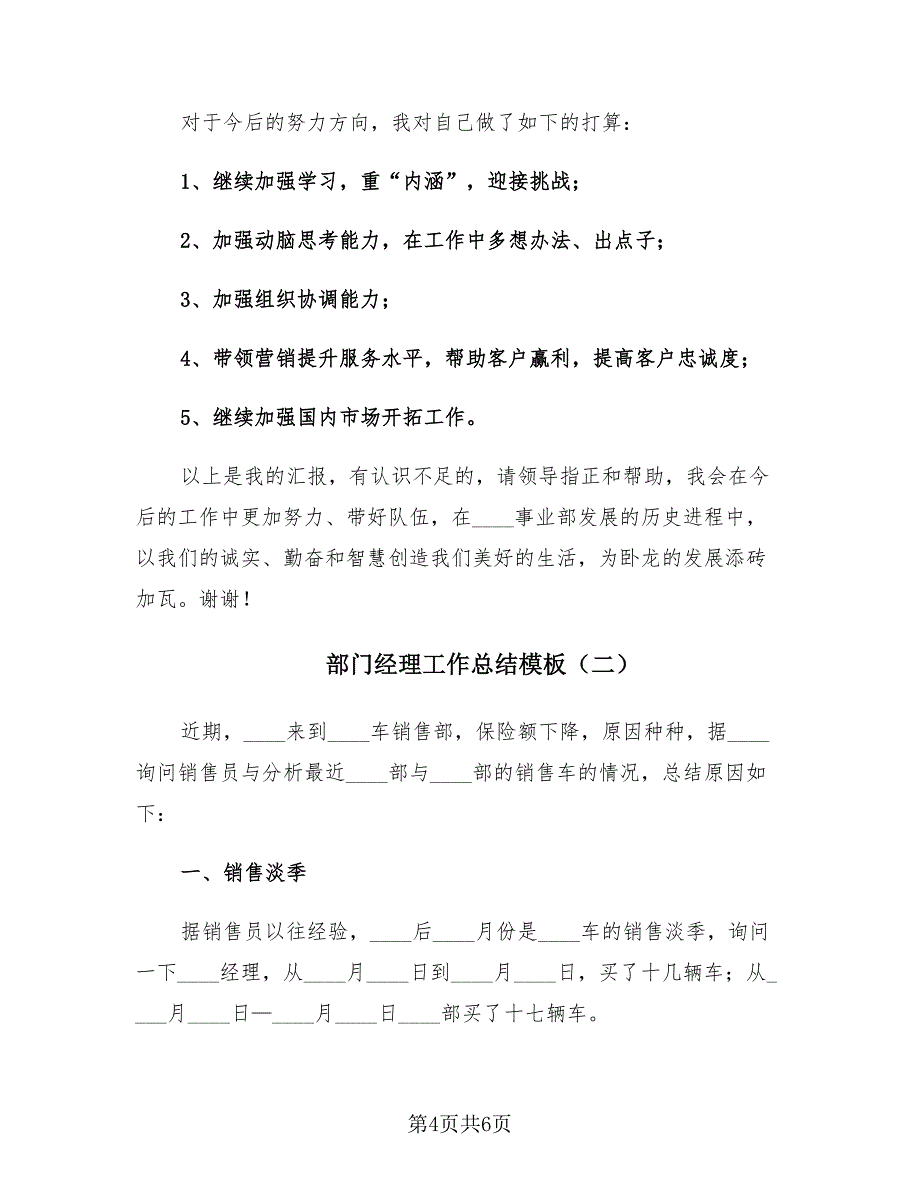 对于今后的努力方向，我对自己做了如下的打算：
1、继续加强学习，重“内涵”，迎接挑战；
2、加强动脑思考能力，在工作中多想办法、出点子；
3、加强组织协调能力；
4、带领营销提升服务水平，帮助客户赢利，提高客户忠诚度；
5、继续加强国内市场开拓工作。
以上是我的汇报，有认识不足的，请领导指正和帮助，我会在今
后的工作中更加努力、带好队伍，在____事业部发展的历史进程中，
以我们的诚实、勤奋和智慧创造我们美好的生活，为卧龙的发展添砖
加瓦。谢谢！
部门经理工作总结模板（二）
近期，____来到____车销售部，保险额下降，原因种种，据____
询问销售员与分析最近____部与____部的销售车的情况，总结原因如
下：
一、销售淡季
据销售员以往经验，____后____月份是____车的销售淡季，询问
一下____经理，从____月____日到____月____日，买了十几辆车；从_
___月____日—____月____日____部买了十七辆车。
第4页共6页